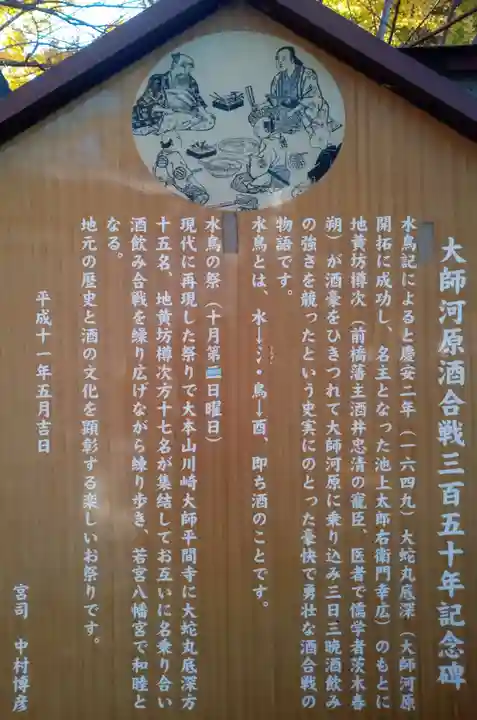 大師河原酒合戦三百五十年記念碑
水鳥記によると慶安二年（一六四九）大蛇丸底深（大師河原
開拓に成功し、名主となった池上太郎右衛門幸広）のもとに
地黄坊樽次（前橋藩主酒井忠清の寵臣、医者で儒学者茨木春
朔）が酒豪をひきつれて大師河原に乗り込み三日三晩酒飲み
の強さを競ったという史実にのとった豪快で勇壮な酒合戦の
物語です。
水鳥とは、水→シ・鳥→酉、即ち酒のことです。
水鳥の祭（十月第三日曜日）
現代に再現した祭りで大本山川崎大師平間寺に大蛇丸底深方
十五名、地黄坊樽次方十七名が集結してお互いに名乗り合い
酒飲み合戦を繰り広げながら練り歩き、若宮八幡宮で和睦と
なる。
地元の歴史と酒の文化を顕彰する楽しいお祭りです。
平成十一年五月吉日
宮司 中村博彦